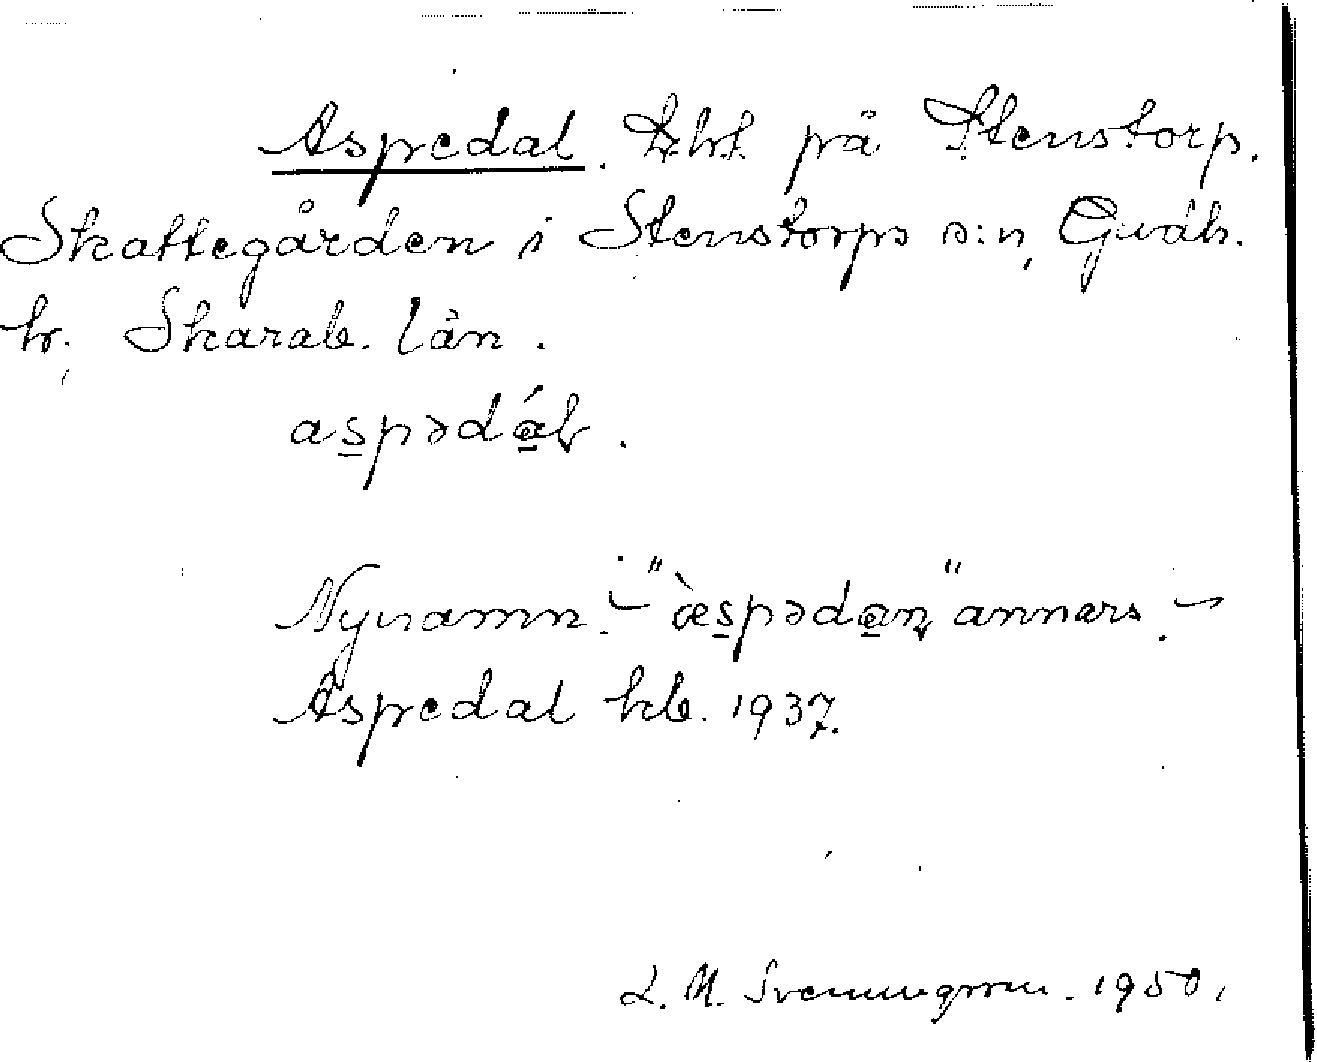 Aspedal. på Stenstorp.
Skattegården i Stenstorps s:n, Gudh.
hr. Skarab. län.
aspədáɫ.
Nynamn. – "æ̀spədan" annars. –
Aspedal kb. 1937.
L. M. Svenungsson. 1950.